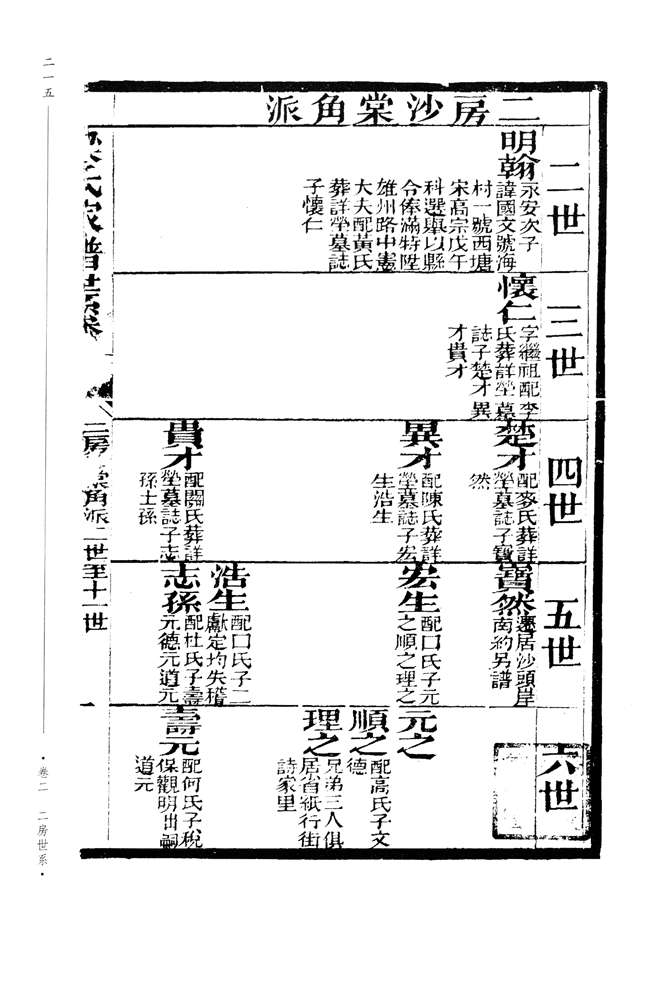 二房沙棠角派
二世
明翰
永安次子
諱國文號海
村一號西塘
宋高宗戊午
科選舉以縣
令俸滿特陞
雄州路中憲
大夫配黃氏
葬詳塋墓誌
子懷仁
三世
懷仁
字繼祖配李
氏葬詳塋墓
誌子楚才異
才貴才
四世
楚才
配麥氏葬詳
塋墓誌子寶
然
異才
配陳氏葬詳
塋墓誌子宏
生浩生
貴才
配關氏葬詳
塋墓誌子志
孫士孫
五世
寶然
遷居沙頭岸
南約另譜
宏生
配口氏子元
之順之理之
浩生
配口氏子二
獻定均失稽
志孫
配杜氏子壽
元德元道元
六世
元之
順之
配高氏子文
德
理之
兄弟三人俱
居省紙行街
詩家里
壽元
配何氏子稅
保觀明出嗣
道元
氏家譜世系
二房棠角派二世至十一世
二一五
·卷二 二房世系·